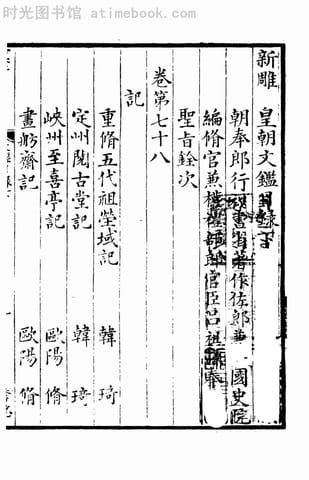 时光图书馆 - www.atimebook.com
新雕 皇朝文鑑目録下
朝奉郎行祕書省著作佐郎兼 國史院
編脩官兼權禮部郎官臣呂祖謙奉
聖旨銓次
卷第七十八
記
重脩五代祖塋域記 韓琦
定州閱古堂記 韓琦
峽州至喜亭記 歐陽脩
畫舫齋記 歐陽脩